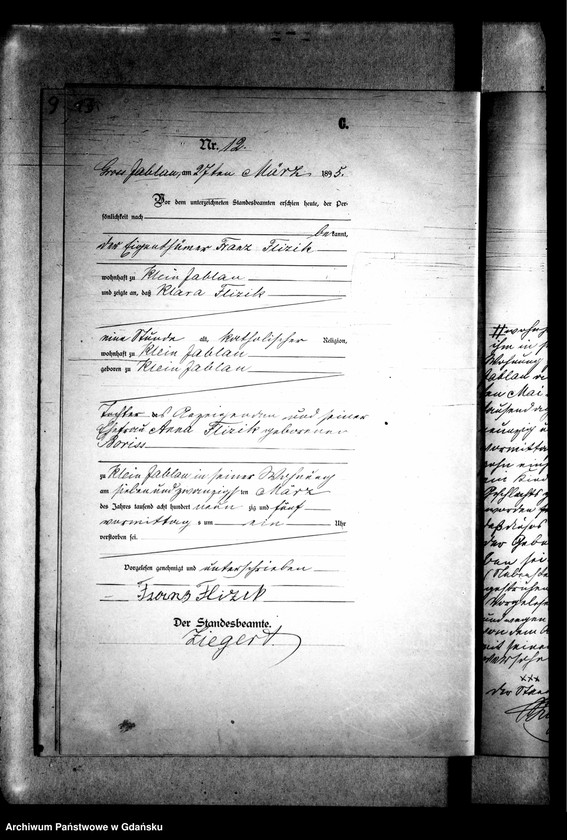 9
C.
Nr. 12.
Gross Jablau, am 27ten März 1895.
Vor dem unterzeichneten Standesbeamten erschien heute, der Per-
sönlichkeit nach
bekannt,
der Eigenthümer Franz Flizik
wohnhaft zu Klein Jablau
und zeigte an, daß Klara Flizik
eine Stunde alt, katholischer Religion,
wohnhaft zu Klein Jablau
geboren zu Klein Jablau
Tochter des Anzeigenden und seiner
Ehefrau Anna Flizik geborenen
Boriss
zu Klein Jablau in seiner Wohnung
am siebenundzwanzigsten März
des Jahres tausend acht hundert neunzig und fünf
vormittags um ein Uhr
verstorben sei.
Vorgelesen, genehmigt und unterschrieben
Franz Flizik
Der Standesbeamte.
Ziegert
ihm in
Wohnung
Jablau
ten Mai
tausend
neunzig
vormittag
zehn ein
ein Kind
Geschlechts
worden
daß dieses
der Gebu
ben sei
Vorgele
xxx
der Stan
Archiwum Państwowe w Gdańsku